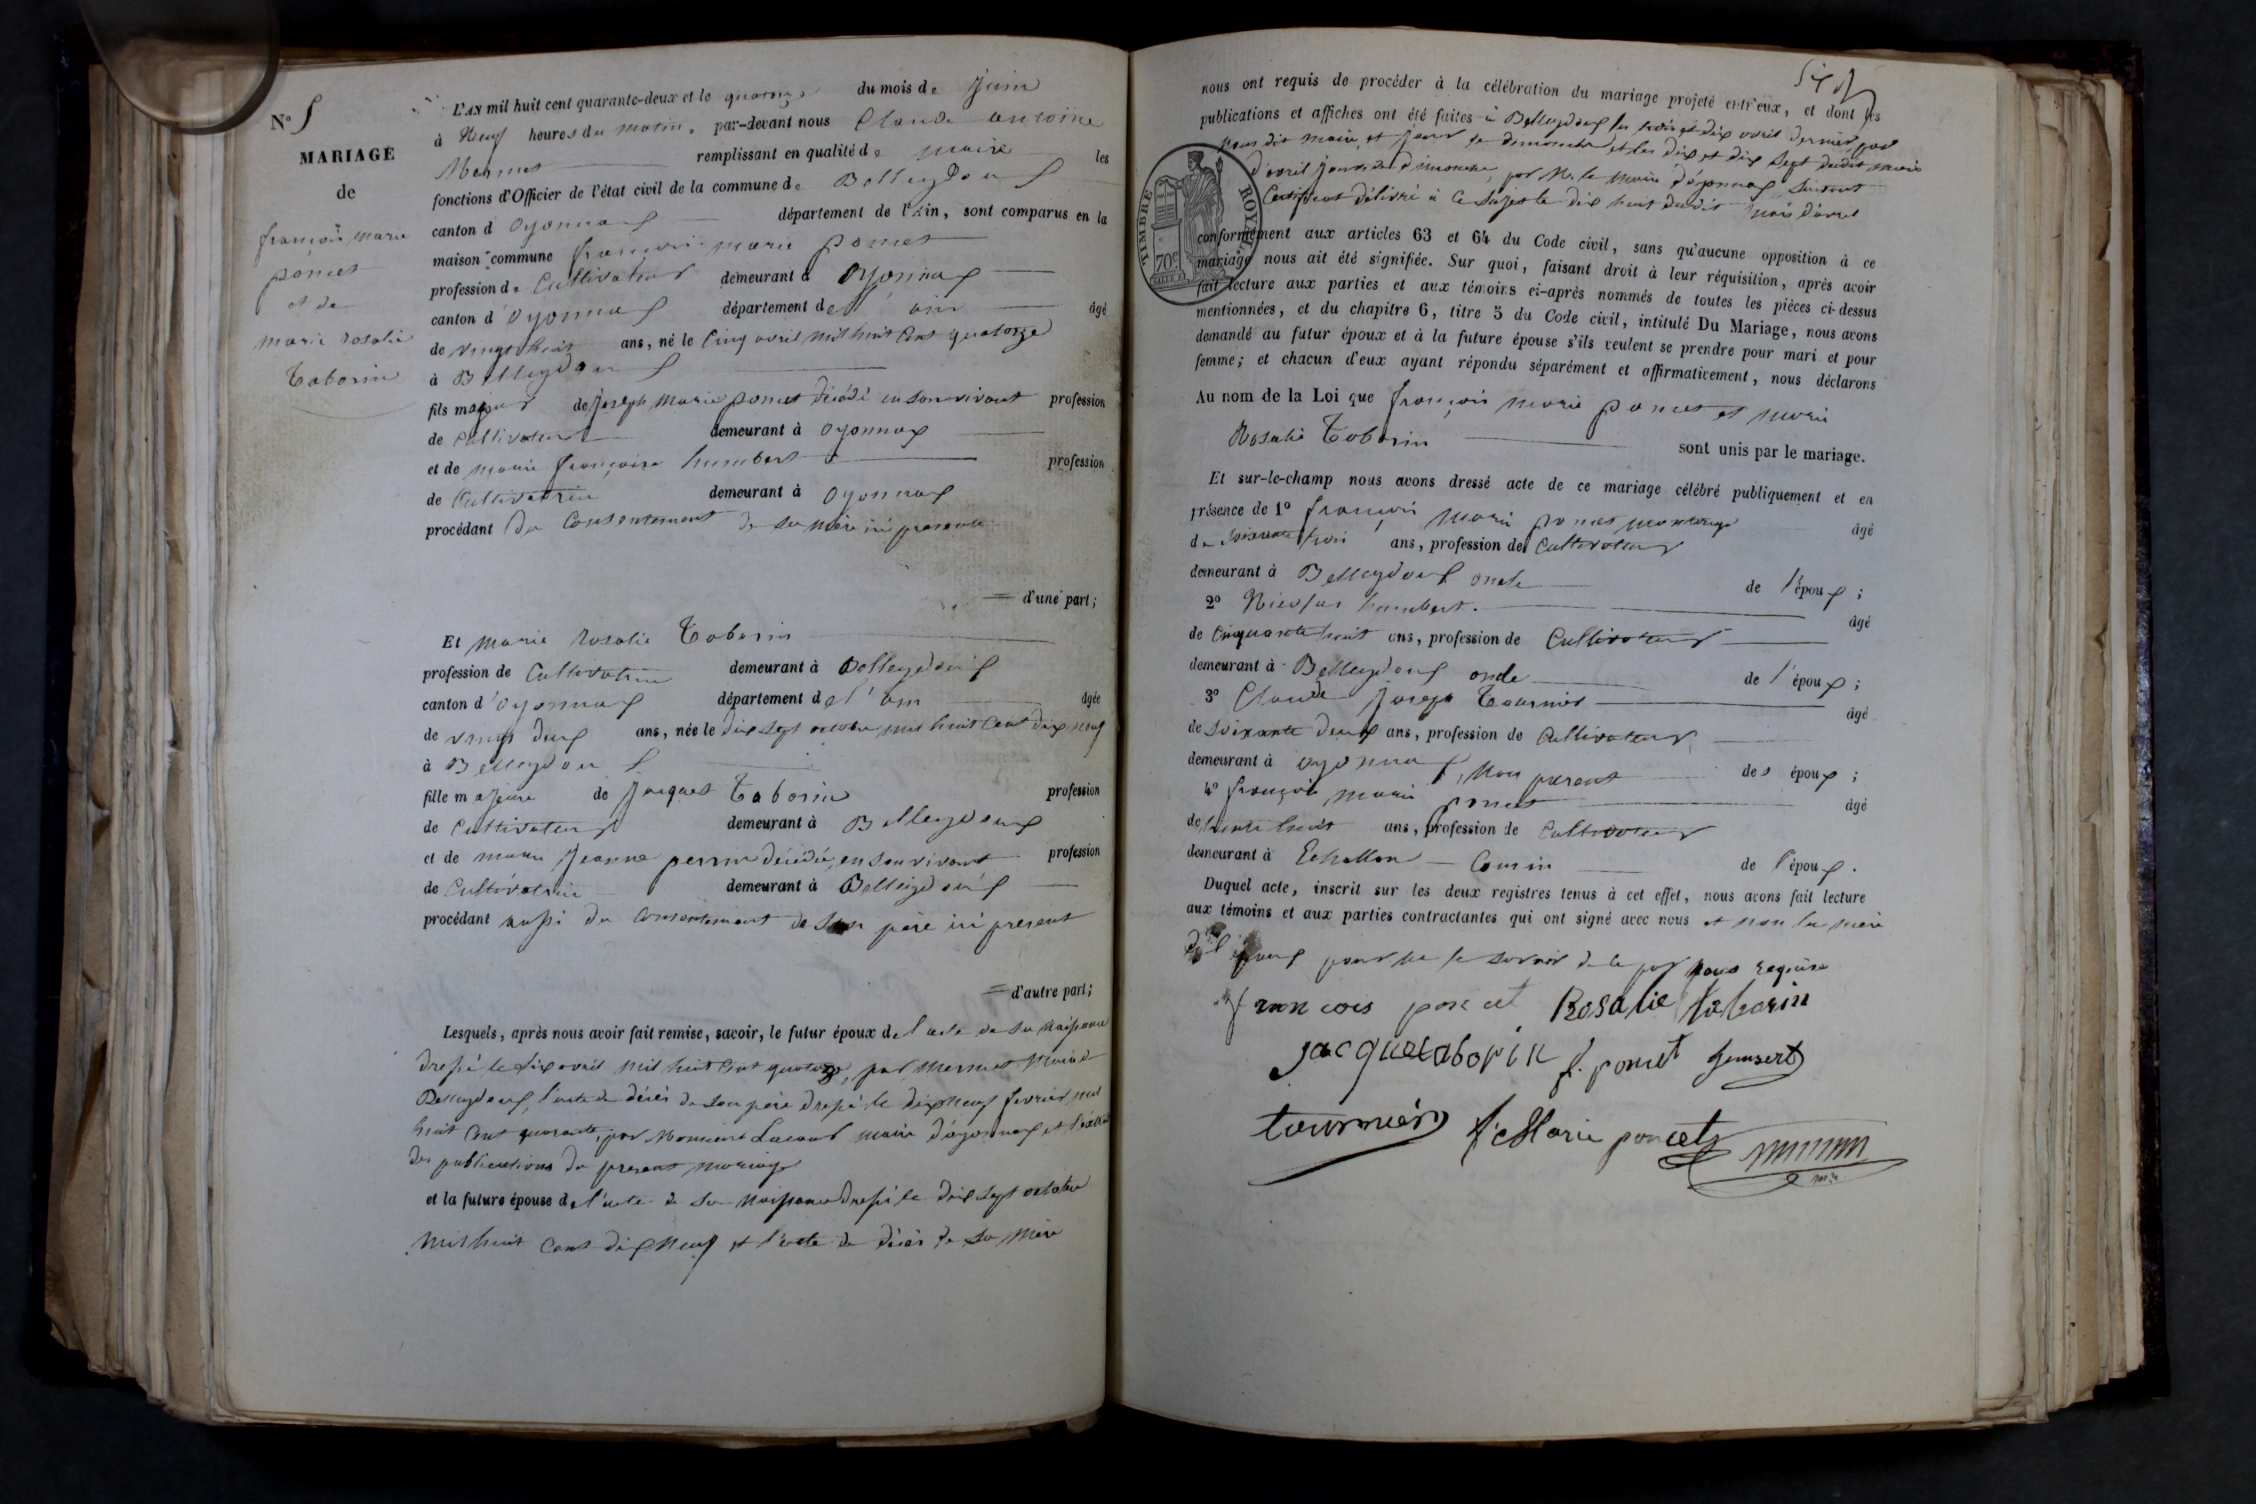 N° 5
MARIAGE
de
françois marie
poncet
et de
marie rosalie
Taborin
L'AN mil huit cent quarante-deux et le quatorze du mois de Juin
à Neuf heures du matin, par-devant nous Claude antoine
Mermet remplissant en qualité de maire les
fonctions d'Officier de l'état civil de la commune de Belleydoux
canton d'Oyonnax département de l'Ain, sont comparus en la
maison commune françois marie poncet
profession de Cultivateur demeurant à Oyonnax
canton d'Oyonnax département de l'ain âgé
de vingt huit ans, né le Cinq avril mil huit Cent quatorze
à Belleydoux
fils majeur de joseph marie poncet décédé en son vivant profession
de Cultivateur demeurant à Oyonnax
et de marie françoise humbert profession
de Cultivatrice demeurant à Oyonnax
procédant du Consentement de sa mère ici présente
d'une part;
Et marie rosalie Taborin
profession de Cultivatrice demeurant à Belleydoux
canton d'Oyonnax département de l'ain âgée
de vingt deux ans, née le dix sept octobre mil huit Cent dix neuf
à Belleydoux
fille majeure de jacques Taborin profession
de Cultivateur demeurant à Belleydoux
et de marie jeanne perrin décédée, en son vivant profession
de Cultivatrice demeurant à Belleydoux
procédant aussi du Consentement de son père ici présent
d'autre part;
Lesquels, après nous avoir fait remise, savoir, le futur époux de l'acte de sa naissance
dressé le six avril mil huit Cent quatorze, par Mermet Maire de
Belleydoux, l'acte de décès de son père dressé le dix neuf février mil
huit Cent quarante, par Monsieur maire d'oyonnax et
des publications du présent mariage
et la future épouse de l'acte de sa naissance dressé le dix sept octobre
mil huit Cent dix neuf et l'acte de décès de sa mère
nous ont requis de procéder à la célébration du mariage projeté entr'eux, et dont les
publications et affiches ont été faites à Belleydoux les trois et dix avril dernier, par
nous dit maire, et jour de dimanche et les dix et dix sept dudit mois
d'avril jours de dimanche, par Mr. le maire d'oyonnax suivant
Certificat délivré à ce sujet le dix huit dudit mois d'avril
TIMBRE ROYAL
70c
conformément aux articles 63 et 64 du Code civil, sans qu'aucune opposition à ce
mariage nous ait été signifiée. Sur quoi, faisant droit à leur réquisition, après avoir
fait lecture aux parties et aux témoins ci-après nommés de toutes les pièces ci-dessus
mentionnées, et du chapitre 6, titre 5 du Code civil, intitulé Du Mariage, nous avons
demandé au futur époux et à la future épouse s'ils veulent se prendre pour mari et pour
femme; et chacun d'eux ayant répondu séparément et affirmativement, nous déclarons
Au nom de la Loi que françois marie poncet et marie
Rosalie Taborin sont unis par le mariage.
Et sur-le-champ nous avons dressé acte de ce mariage célébré publiquement et en
présence de 1° françois marie poncet âgé
de soixante trois ans, profession de Cultivateur
demeurant à Belleydoux oncle de l'époux;
2° Nicolas humbert. âgé
de Cinquante huit ans, profession de Cultivateur
demeurant à Belleydoux oncle de l'époux;
3° Claude joseph Tournier âgé
de soixante deux ans, profession de Cultivateur
demeurant à oyonnax, Non parent des époux;
4° françois marie poncet âgé
de trente huit ans, profession de Cultivateur
demeurant à Echallon Cousin de l'époux.
Duquel acte, inscrit sur les deux registres tenus à cet effet, nous avons fait lecture
aux témoins et aux parties contractantes qui ont signé avec nous et non la mère
de l'époux pour ne le savoir de ce par nous requise
francois poncet Rosalie taborin
jacquetaborin f. poncet humbert
tournier f. Marie poncet